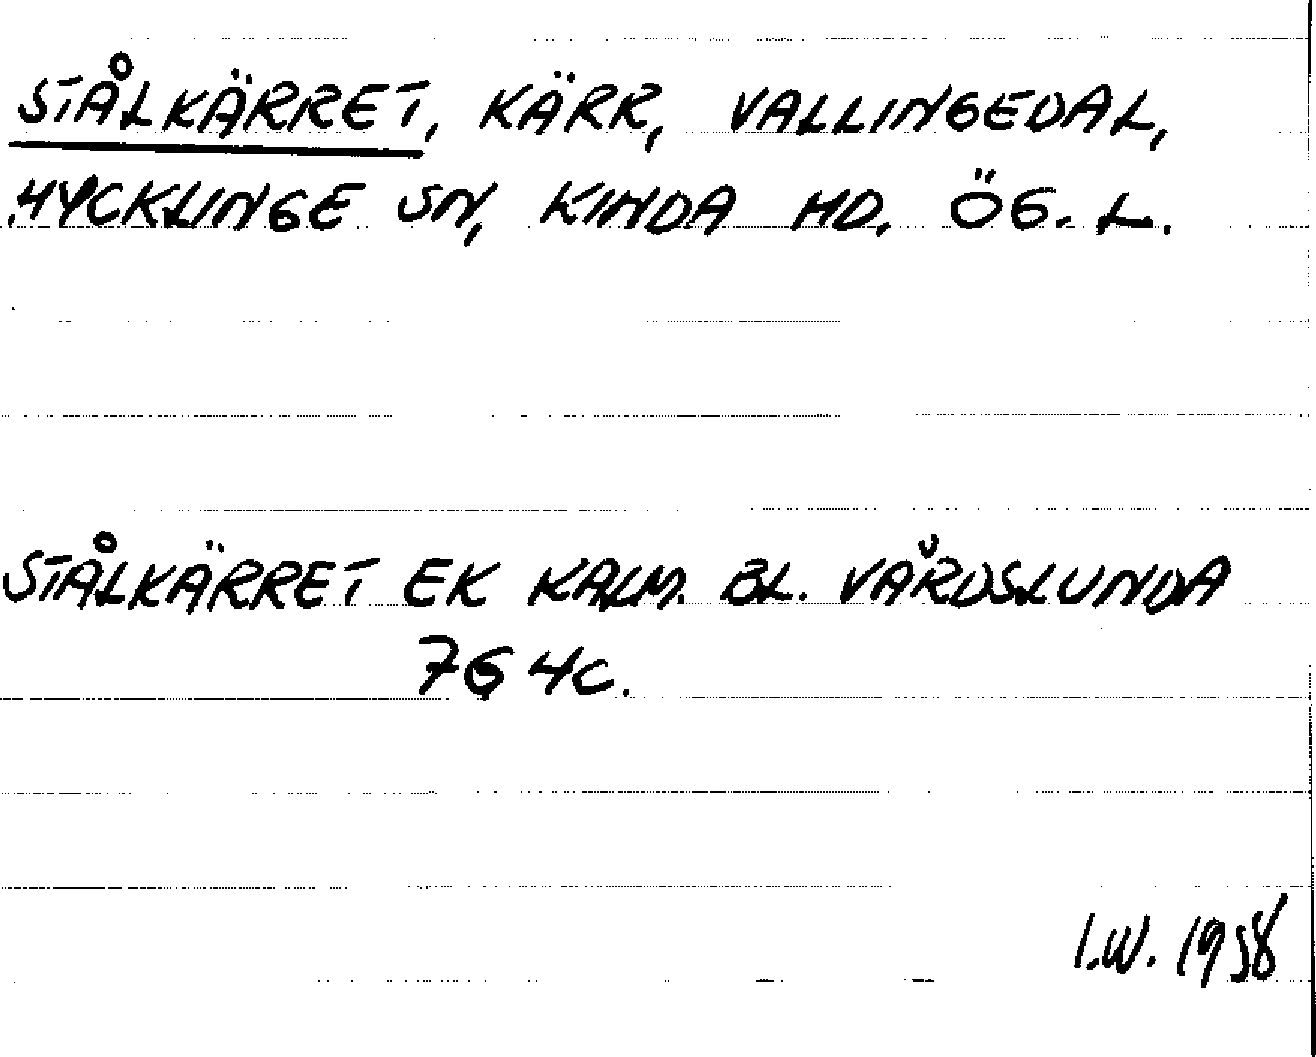 STÅLKÄRRET, KÄRR, VALLINGEDAL,
HYCKLINGE SN, KINDA HD. ÖG. L.
STÅLKÄRRET EK KALM. BL. VÅRDSLUNDA
7G 4C.
I.W. 1958